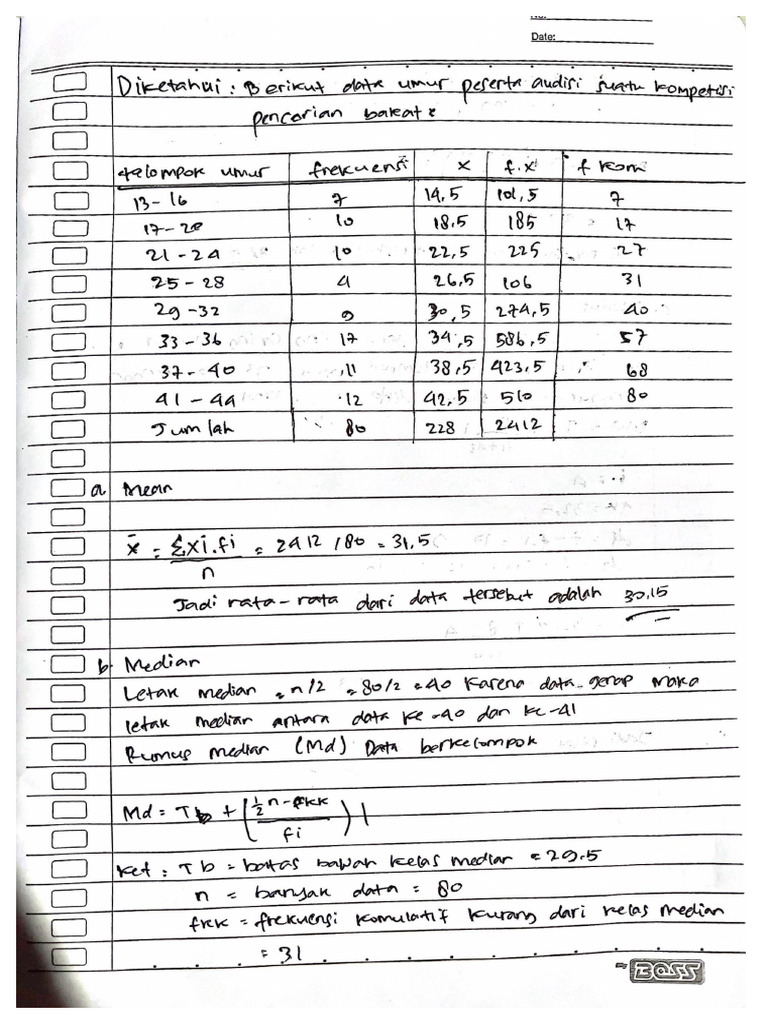 No:
Date:
Diketahui : Berikut data umur peserta audisi suatu kompetisi
pencarian bakat :
Kelompok umur frekuensi x f.x f kom
13-16 7 14,5 101,5 7
17-20 10 18,5 185 17
21-24 10 22,5 225 27
25-28 4 26,5 106 31
29-32 9 30,5 274,5 40
33-36 17 34,5 586,5 57
37-40 11 38,5 423,5 68
41-44 12 42,5 510 80
Jumlah 80 228 2412
a. Mean
x̄ = Σxi.fi = 2412 / 80 = 31,5
n
Jadi rata-rata dari data tersebut adalah 30,15
b. Median
Letak median = n/2 = 80/2 = 40 karena data genap maka
letak median antara data ke-40 dan ke-41
Rumus median (Md) Data berkelompok
Md = Tb + (½n-fkk / fi) I
Ket : Tb = batas bawah kelas median = 29.5
n = banyak data = 80
fkk = frekuensi komulatif kurang dari kelas median
= 31
BOSS